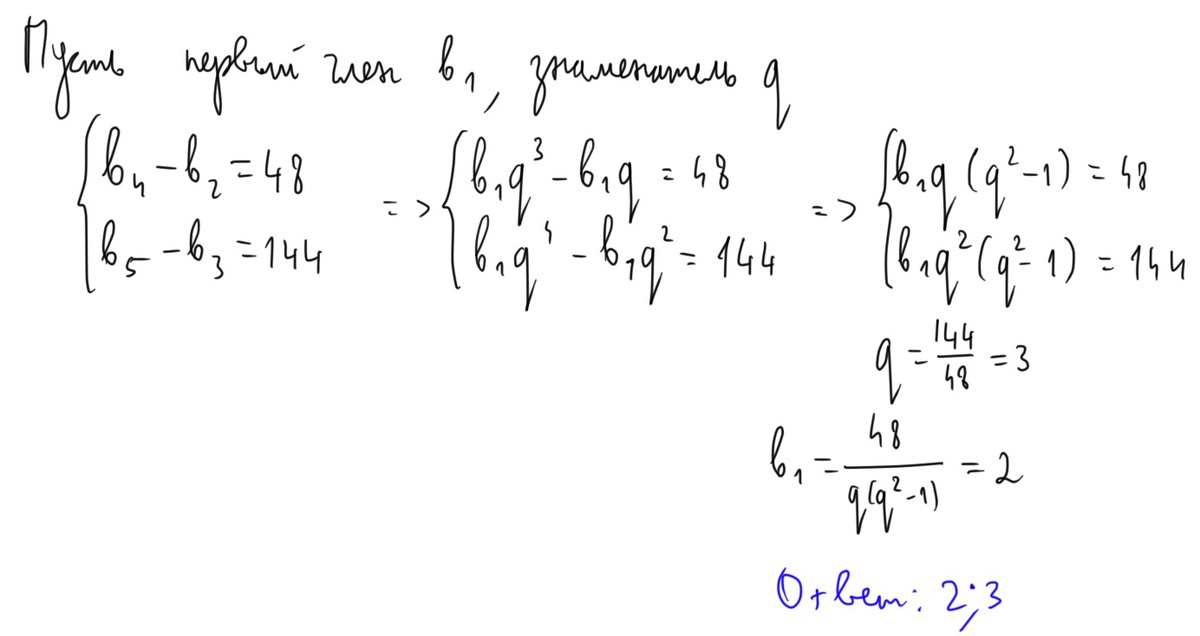 Пусть первый член b₁, знаменатель q
{ b₄ – b₂ = 48 => { b₁q³ – b₁q = 48 => { b₁q (q² – 1) = 48
{ b₅ – b₃ = 144 { b₁q⁴ – b₁q² = 144 { b₁q² (q² – 1) = 144
q = 144/48 = 3
b₁ = 48/(q(q² – 1)) = 2
Ответ: 2; 3